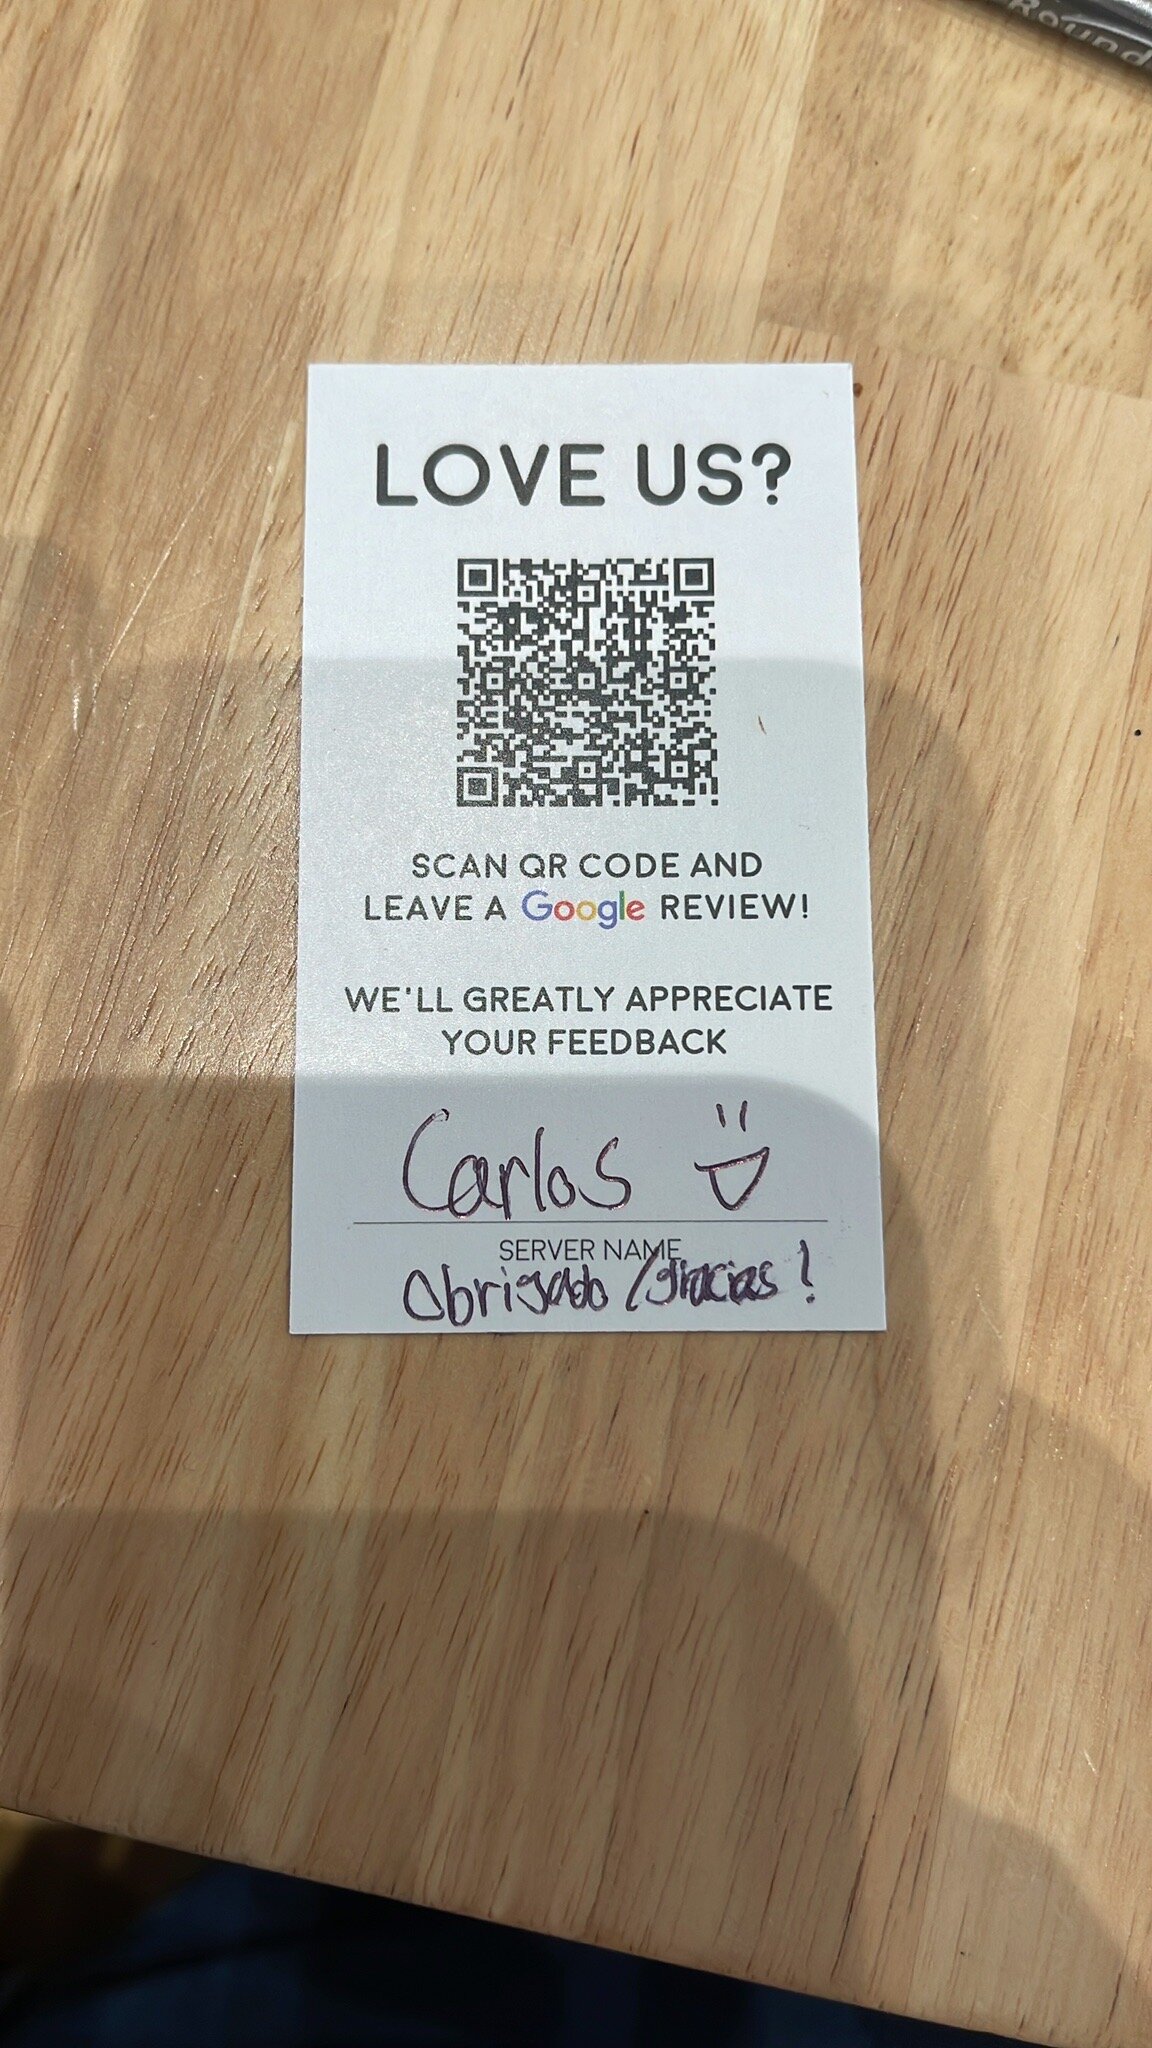 Round
LOVE US?
SCAN QR CODE AND
LEAVE A Google REVIEW!
WE'LL GREATLY APPRECIATE
YOUR FEEDBACK
Carlos
SERVER NAME
Obrigado / gracias!